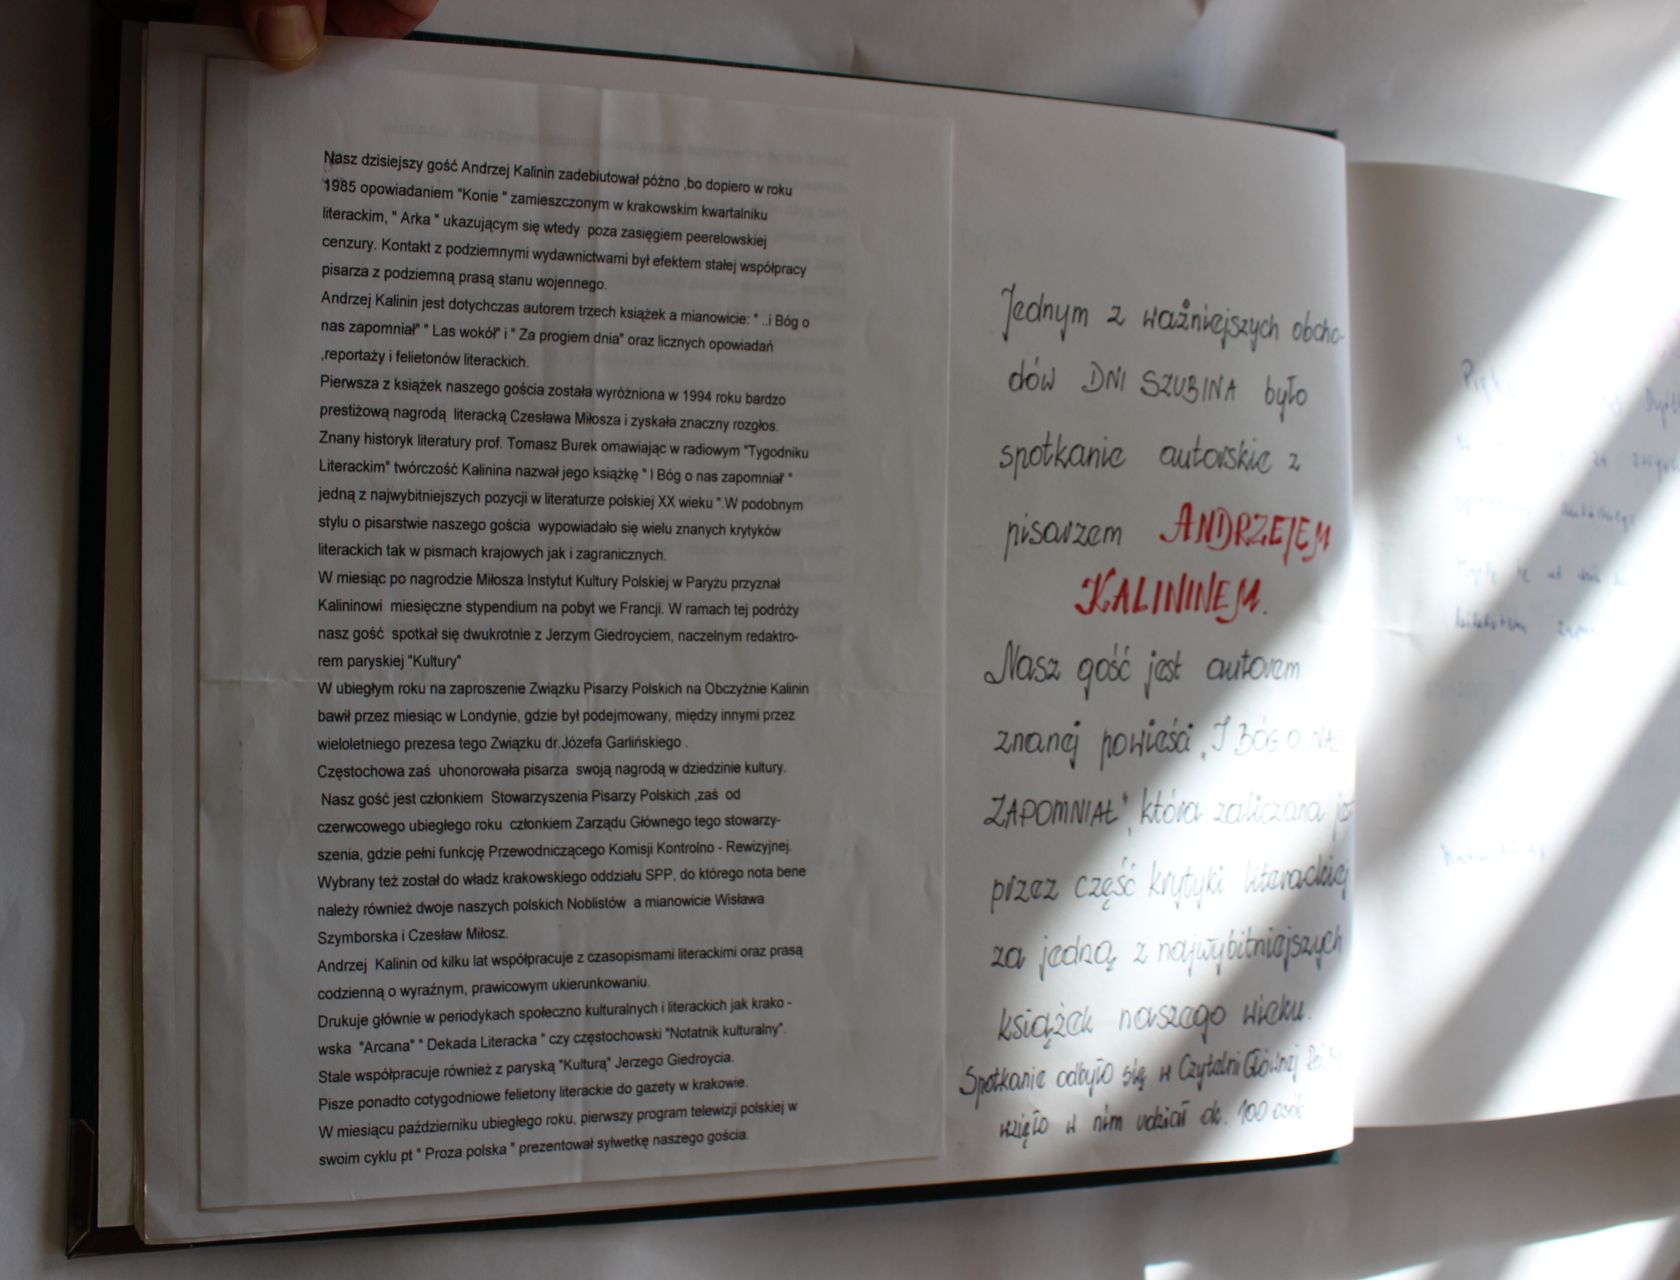 Nasz dzisiejszy gość Andrzej Kalinin zadebiutował późno ,bo dopiero w roku
1985 opowiadaniem "Konie " zamieszczonym w krakowskim kwartalniku
literackim, " Arka " ukazującym się wtedy poza zasięgiem peerelowskiej
cenzury. Kontakt z podziemnymi wydawnictwami był efektem stałej współpracy
pisarza z podziemną prasą stanu wojennego.
Andrzej Kalinin jest dotychczas autorem trzech książek a mianowicie: " ..i Bóg o
nas zapomniał" " Las wokół" i " Za progiem dnia" oraz licznych opowiadań
,reportaży i felietonów literackich.
Pierwsza z książek naszego gościa została wyróżniona w 1994 roku bardzo
prestiżową nagrodą literacką Czesława Miłosza i zyskała znaczny rozgłos.
Znany historyk literatury prof. Tomasz Burek omawiając w radiowym "Tygodniku
Literackim" twórczość Kalinina nazwał jego książkę " I Bóg o nas zapomniał" "
jedną z najwybitniejszych pozycji w literaturze polskiej XX wieku ".W podobnym
stylu o pisarstwie naszego gościa wypowiadało się wielu znanych krytyków
literackich tak w pismach krajowych jak i zagranicznych.
W miesiąc po nagrodzie Miłosza Instytut Kultury Polskiej w Paryżu przyznał
Kalininowi miesięczne stypendium na pobyt we Francji. W ramach tej podróży
nasz gość spotkał się dwukrotnie z Jerzym Giedroyciem, naczelnym redakto-
rem paryskiej "Kultury"
W ubiegłym roku na zaproszenie Związku Pisarzy Polskich na Obczyźnie Kalinin
bawił przez miesiąc w Londynie, gdzie był podejmowany, między innymi przez
wieloletniego prezesa tego Związku dr.Józefa Garlińskiego .
Częstochowa zaś uhonorowała pisarza swoją nagrodą w dziedzinie kultury.
Nasz gość jest członkiem Stowarzyszenia Pisarzy Polskich ,zaś od
czerwcowego ubiegłego roku członkiem Zarządu Głównego tego stowarzy-
szenia, gdzie pełni funkcję Przewodniczącego Komisji Kontrolno - Rewizyjnej.
Wybrany też został do władz krakowskiego oddziału SPP, do którego nota bene
należy również dwoje naszych polskich Noblistów a mianowicie Wisława
Szymborska i Czesław Miłosz.
Andrzej Kalinin od kilku lat współpracuje z czasopismami literackimi oraz prasą
codzienną o wyraźnym, prawicowym ukierunkowaniu.
Drukuje głównie w periodykach społeczno kulturalnych i literackich jak krako -
wska "Arcana" " Dekada Literacka " czy częstochowski "Notatnik kulturalny".
Stale współpracuje również z paryską "Kulturą" Jerzego Giedroycia.
Pisze ponadto cotygodniowe felietony literackie do gazety w krakowie.
W miesiącu październiku ubiegłego roku, pierwszy program telewizji polskiej w
swoim cyklu pt " Proza polska " prezentował sylwetkę naszego gościa.
Jednym z ważniejszych obcho-
dów DNI SZUBINA było
spotkanie autorskie z
pisarzem ANDRZEJEM
KALININEM.
Nasz gość jest autorem
znanej powieści „I BÓG O NAS
ZAPOMNIAŁ", która zaliczana jest
przez część krytyki literackiej
za jedną z najwybitniejszych
książek naszego wieku.
Spotkanie odbyło się w Czytelni Głównej
wzięło w nim udział ok. 100 osób